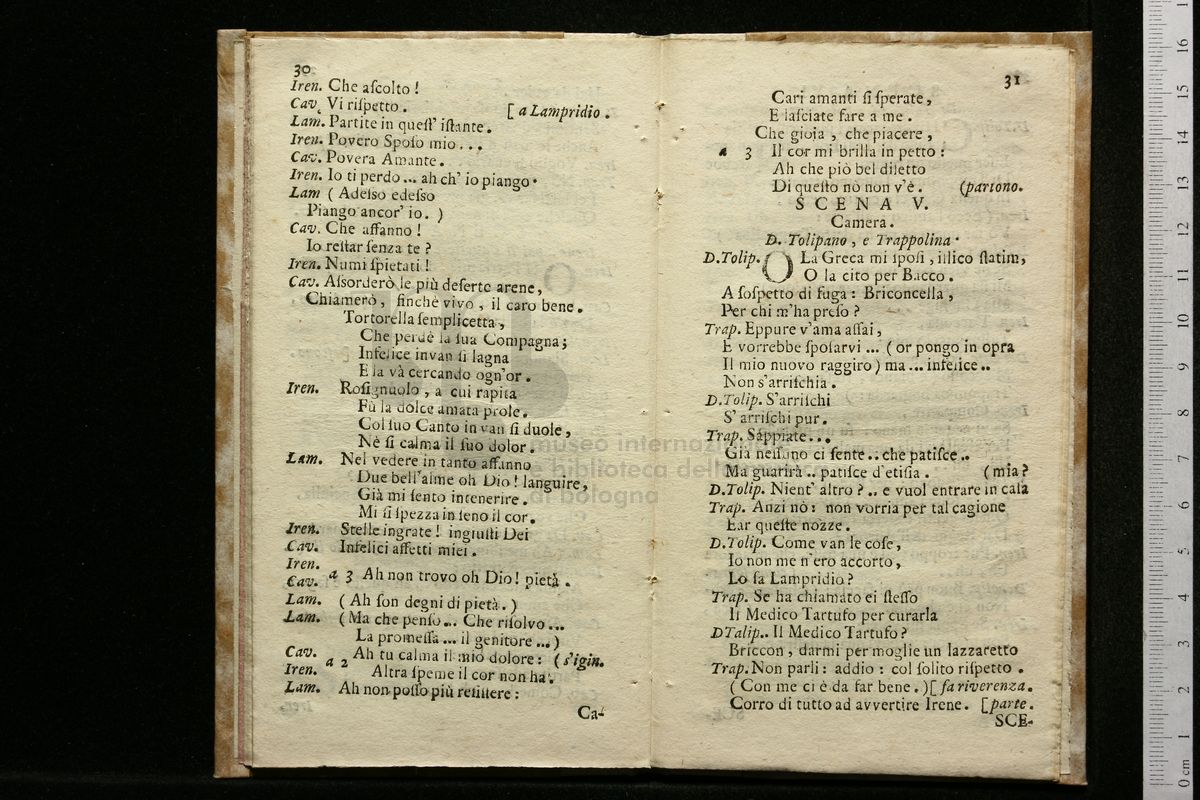 30
Iren. Che aſcolto !
Cav. Vi riſpetto . [ a Lampridio .
Lam. Partite in queſt' iſtante.
Iren. Povero Spoſo mio . . .
Cav. Povera Amante.
Iren. Io ti perdo ... ah ch' io piango.
Lam ( Adeſso edeſso
Piango ancor' io. )
Cav. Che affanno !
Io reſtar ſenza te ?
Iren. Numi ſpietati !
Cav. Aſsorderò le più deſerte arene,
Chiamerò , finchè vivo , il caro bene.
Tortorella ſemplicetta,
Che perdè la ſua Compagna;
Infelice invan ſi lagna
E la và cercando ogn'or .
Iren. Roſignuolo , a cui rapita
Fù la dolce amata prole.
Col ſuo Canto in van ſi duole,
Nè ſi calma il ſuo dolor.
Lam. Nel vedere in tanto affanno
Due bell'alme oh Dio ! languire,
Già mi ſento intenerire.
Mi ſi ſpezza in ſeno il cor.
Iren. Stelle ingrate ! ingiuſti Dei
Cav. Infelici affetti miei .
Iren.
Cav. a 3 Ah non trovo oh Dio ! pietà .
Lam. ( Ah ſon degni di pietà . )
Lam. ( Ma che penſo... Che riſolvo ...
La promeſſa ... il genitore ... )
Cav. a 2 Ah tu calma il mio dolore : ( s'igin.
Iren. Altra ſpeme il cor non ha.
Lam. Ah non poſſo più reſiſtere :
Ca-
31
Cari amanti ſi ſperate,
E laſciate fare a me .
Che gioia , che piacere ,
a 3 Il cor mi brilla in petto :
Ah che piò bel diletto
Di queſto nò non v'è . (partono.
SCENA V.
Camera.
D. Tolipano , e Trappolina .
D.Tolip. O La Greca mi ſpoſi , illico ſtatim,
O la cito per Bacco .
A ſoſpetto di fuga : Briconcella ,
Per chi m'ha preſo ?
Trap. Eppure v'ama aſſai ,
E vorrebbe ſpoſarvi ... ( or pongo in opra
Il mio nuovo raggiro ) ma ... infelice ..
Non s'arriſchia .
D.Tolip. S'arriſchi
S' arriſchi pur.
Trap. Sappiate . . .
Già neſſuno ci ſente . . che patiſce ..
Ma guarirà .. patiſce d'etiſia . ( mia ?
D.Tolip. Nient' altro ? .. e vuol entrare in caſa
Trap. Anzi nò : non vorria per tal cagione
Far queſte nozze .
D.Tolip. Come van le coſe,
Io non me n'ero accorto,
Lo ſa Lampridio ?
Trap. Se ha chiamato ei ſteſſo
Il Medico Tartufo per curarla
DTalip.. Il Medico Tartufo ?
Briccon , darmi per moglie un lazzaretto
Trap. Non parli : addio : col ſolito riſpetto .
( Con me ci è da far bene . )[ fa riverenza.
Corro di tutto ad avvertire Irene. [parte .
SCE-
museo internazionale
e biblioteca della musica
di bologna